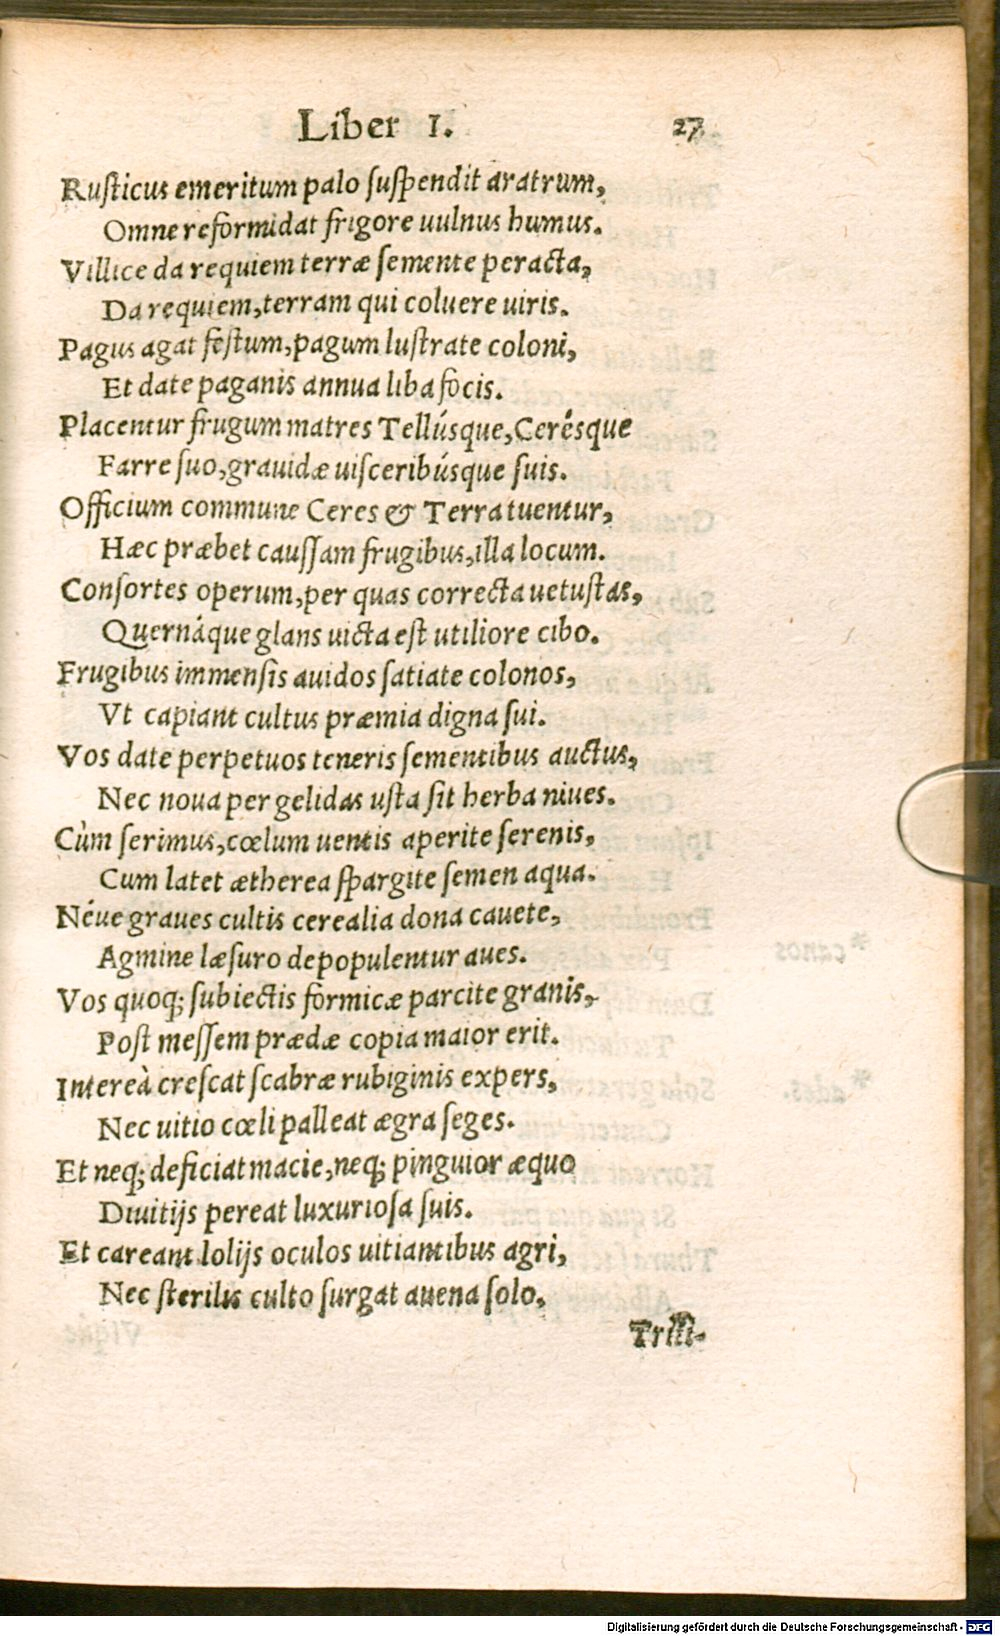 Liber I. 27
Rusticus emeritum palo suspendit aratrum,
Omne reformidat frigore uulnus humus.
Villice da requiem terræ semente peracta,
Da requiem, terram qui coluere uiris.
Pagus agat festum, pagum lustrate coloni,
Et date paganis annua liba focis.
Placentur frugum matres Tellúsque, Cerésque
Farre suo, grauidæ uisceribúsque suis.
Officium commune Ceres & Terra tuentur,
Hæc præbet caussam frugibus, illa locum.
Consortes operum, per quas correcta uetustas,
Quernáque glans uicta est utiliore cibo.
Frugibus immensis auidos satiate colonos,
Vt capiant cultus præmia digna sui.
Vos date perpetuos teneris sementibus auctus,
Nec noua per gelidas usta sit herba niues.
Cùm serimus, cœlum uentis aperite serenis,
Cum latet ætherea spargite semen aqua.
Néue graues cultis cerealia dona cauete,
Agmine læsuro depopulentur aues.
Vos quoq; subiectis formicæ parcite granis,
Post messem prædæ copia maior erit.
Intereà crescat scabræ rubiginis expers,
Nec uitio cœli palleat ægra seges.
Et neq; deficiat macie, neq; pinguior æquo
Diuitijs pereat luxuriosa suis.
Et careant lolijs oculos uitiantibus agri,
Nec sterilis culto surgat auena solo,
Triti-
Digitalisierung gefördert durch die Deutsche Forschungsgemeinschaft - DFG